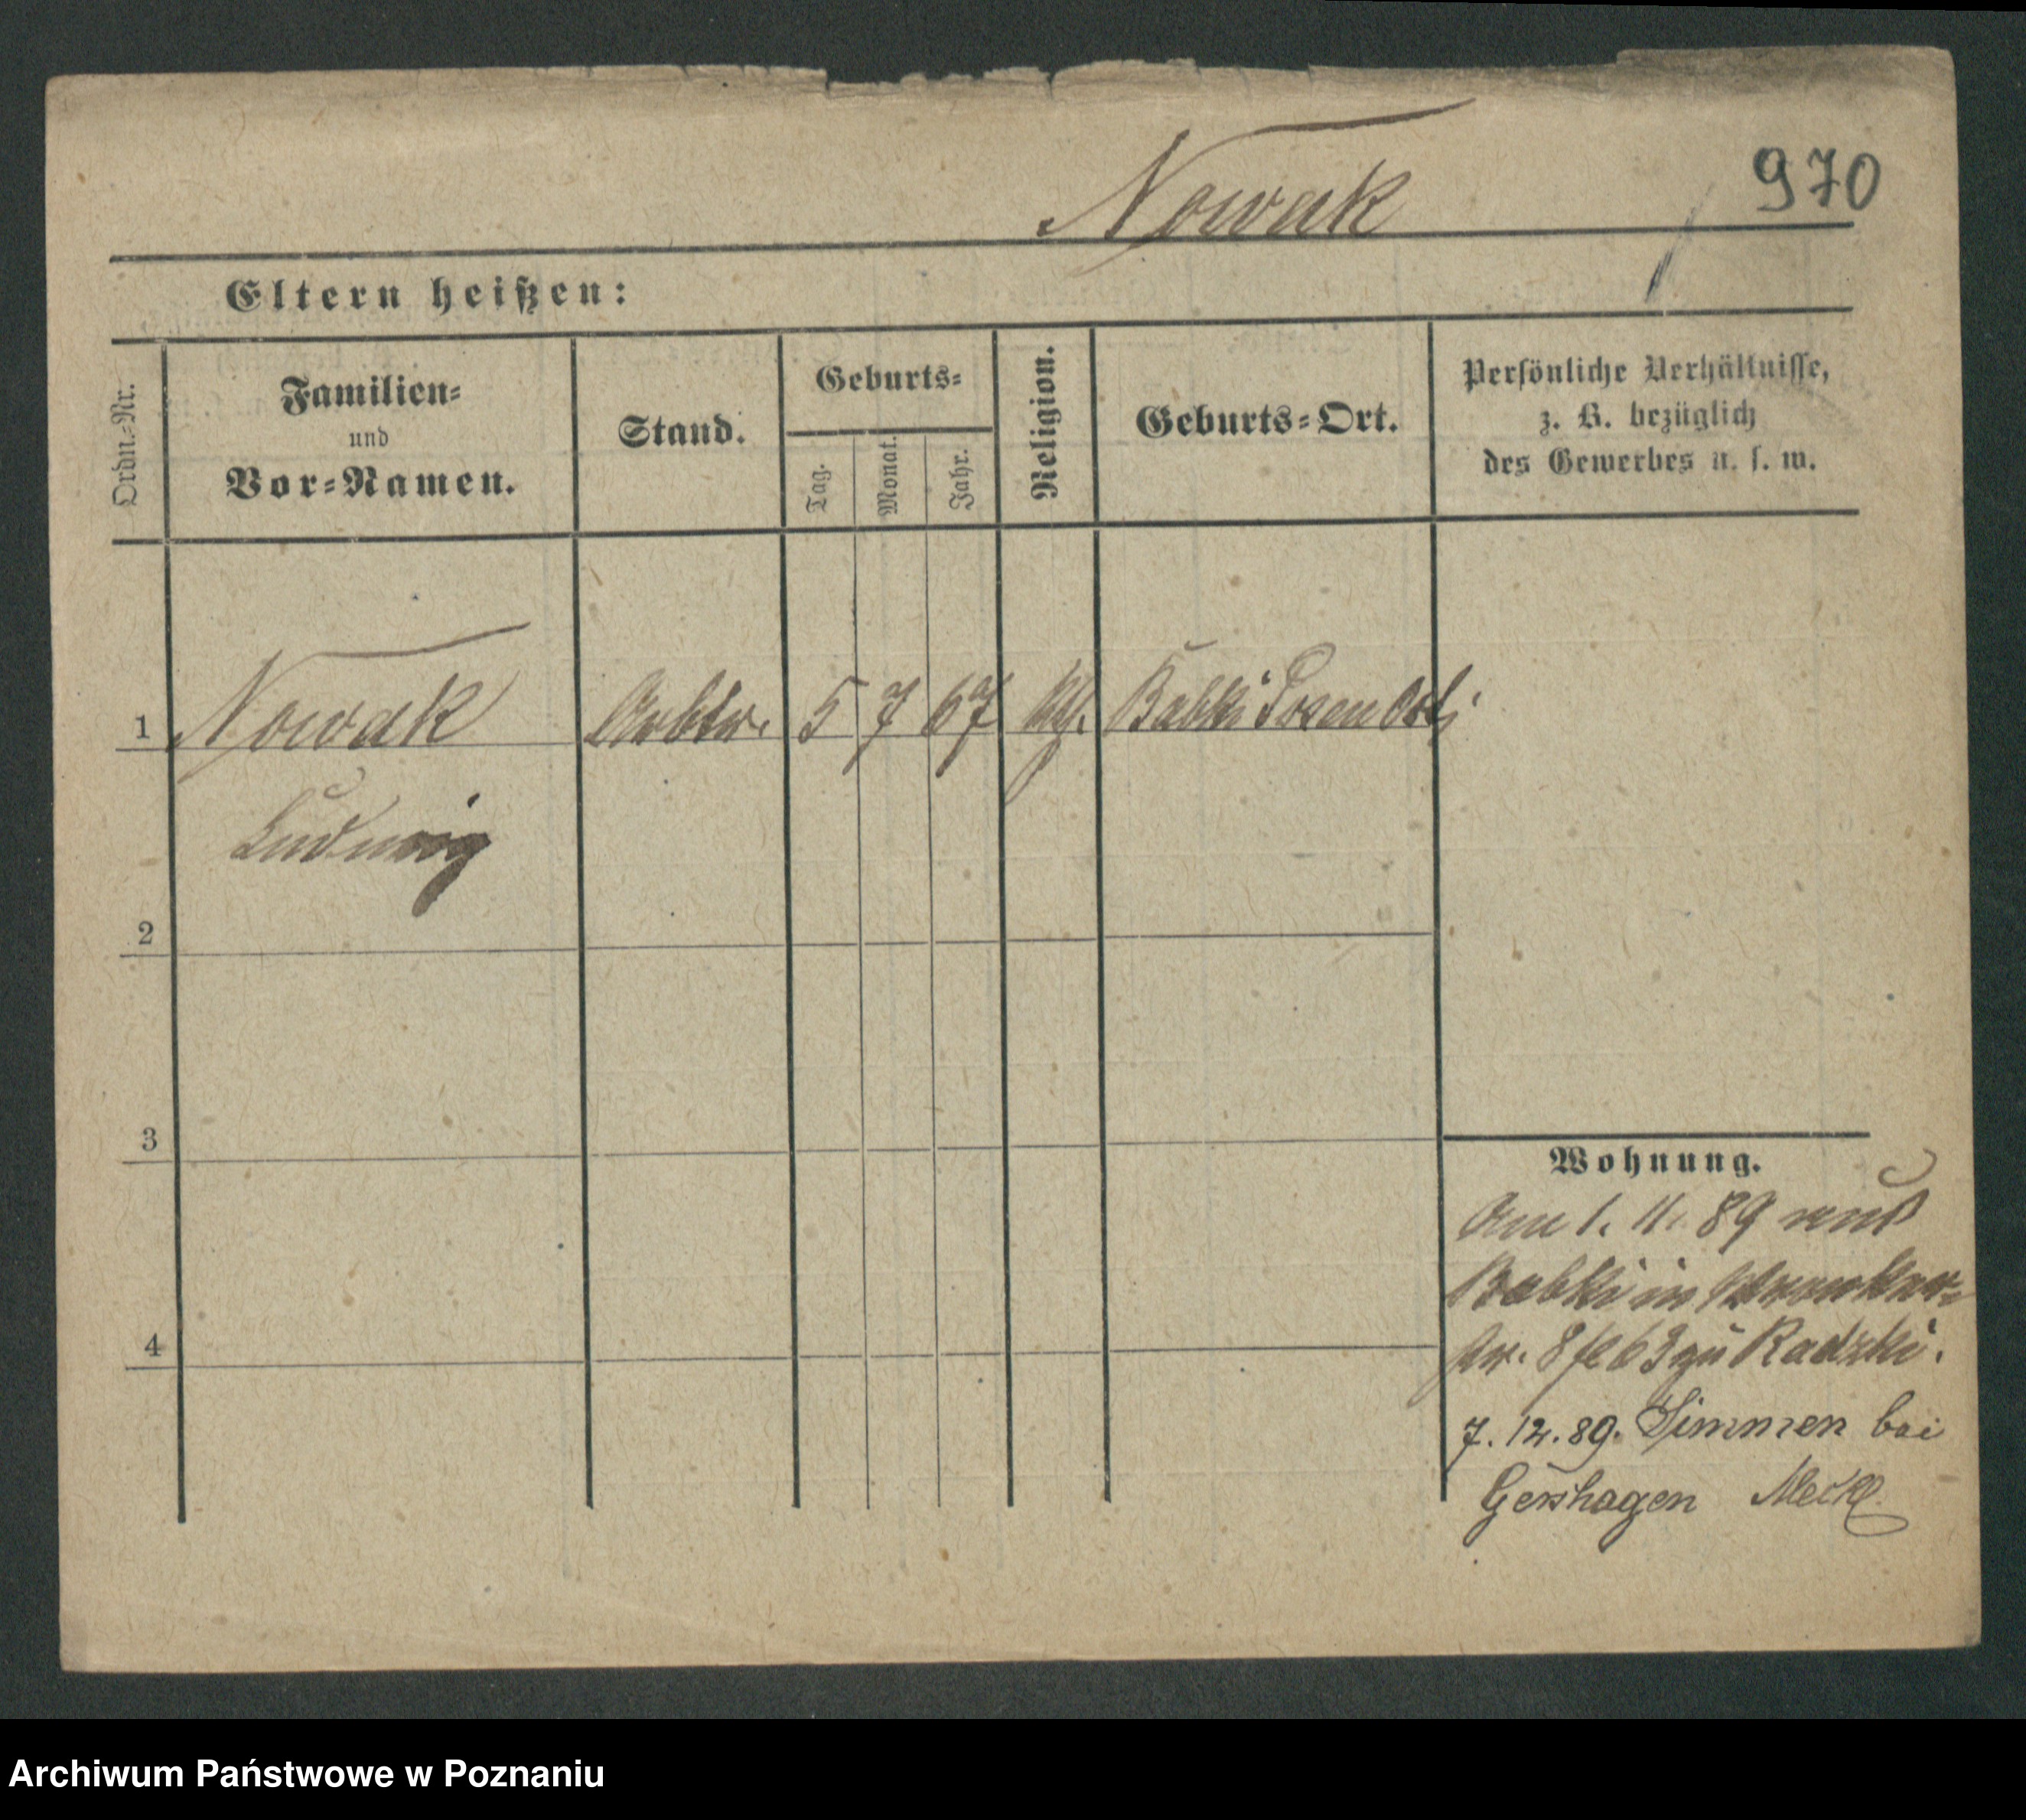 Nowak 970
Eltern heißen:
Ordn.-Nr.
Familien-
und
Vor-Namen.
Stand.
Geburts-
Tag.
Monat.
Jahr.
Religion.
Geburts-Ort.
Persönliche Verhältnisse,
z. B. bezüglich
des Gewerbes u. s. w.
1 Nowak Arbtr. 5 7 67 kth. Babki Posen Ost
Ludwig
2
3
4
Wohnung.
Am 1. 11. 89 aus
Babki in
8 63 zu Radzki.
7. 12. 89. Simmen bei
Gershagen Meckl.
Archiwum Państwowe w Poznaniu